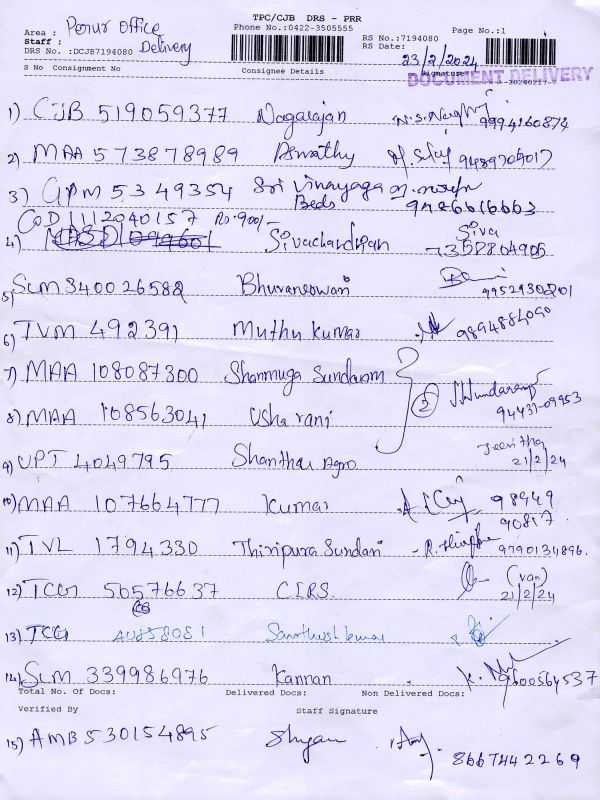 TPC/CJB DRS - PRR
Area : Perur Office
Phone No.:0422-3505555
Page No.:1
Staff :
RS No.:7194080
DRS No. :DCJB7194080 Delivery
RS Date:
23/2/2024
DOCUMENT DELIVERY
S No Consignment No Consignee Details Signature
1) CJB 519059377 Nagarajan 9994160874
2) MAA 573878989 9489709017
3) GPM 5349354 Sri Vinayaga Beds 9486616663
COD 1112040157 Rs.900/-
4) Sivachandran Siva 7358804905
5) SLM 340026582 Bhuvaneswari 9952930201
6) TVM 492391 Muthu Kumar 9894884090
7) MAA 108087300 Shanmuga Sundaram
2 94431-09953
8) MAA 108563041 Usha rani
9) UPT 4049795 Shanthai Agro Jeevitha 21/2/24
10) MAA 107664777 Kumar 98949 90817
11) TVL 1794330 Thiripura Sundari 9790134896
12) TCG 50576637 CIRS (van) 21/2/24
13) TCG Santhosh kumar
14) SLM 339986976 Kannan 9600564537
Total No. Of Docs: Delivered Docs: Non Delivered Docs:
Verified By Staff Signature
15) AMB 530154895 Shyam 8667442269